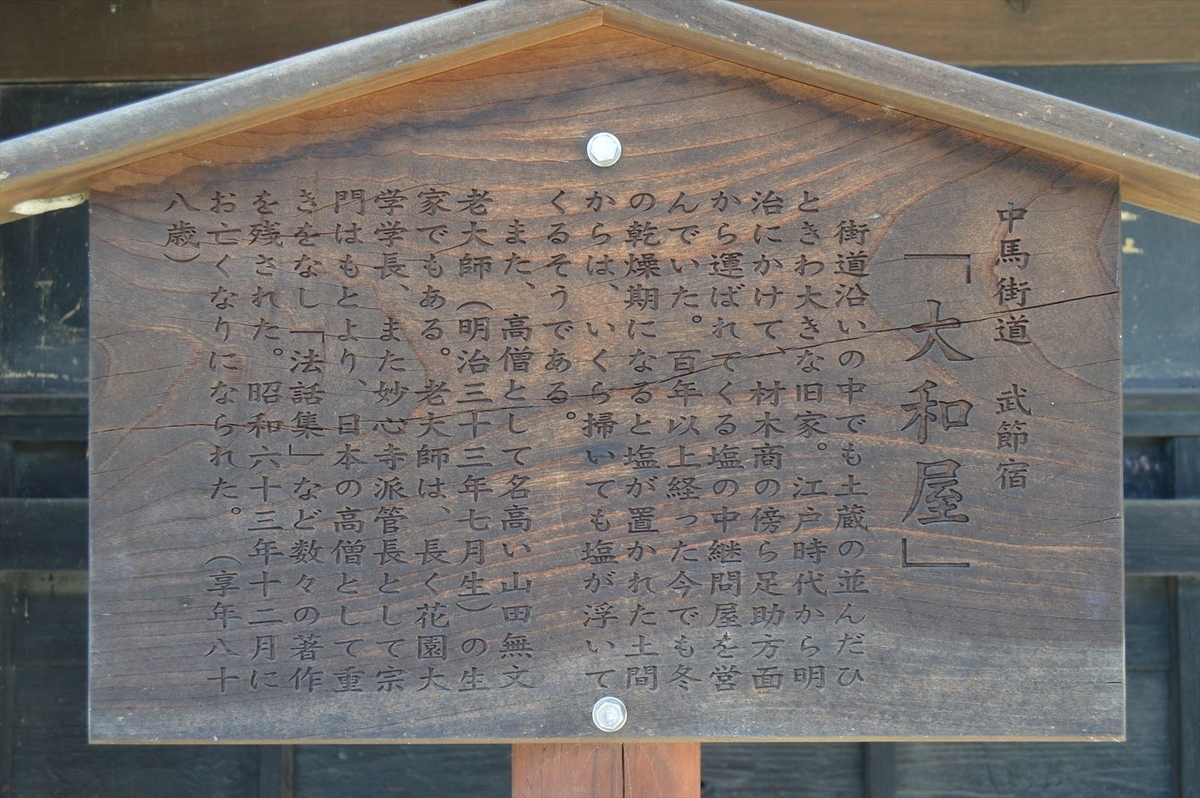 中馬街道　武節宿
「大和屋」
街道沿いの中でも土蔵の並んだひ
ときわ大きな旧家。江戸時代から明
治にかけて、材木商の傍ら足助方面
から運ばれてくる塩の中継問屋を営
んでいた。百年以上経った今でも冬
の乾燥期になると塩が置かれた土間
からは、いくら掃いても塩が浮いて
くるそうである。
また、高僧として名高い山田無文
老大師（明治三十三年七月生）の生
家でもある。老大師は、長く花園大
学学長、また妙心寺派管長として宗
門はもとより、日本の高僧として重
きをなし「法話集」など数々の著作
を残された。昭和六十三年十二月に
お亡くなりになられた。（享年八十
八歳）